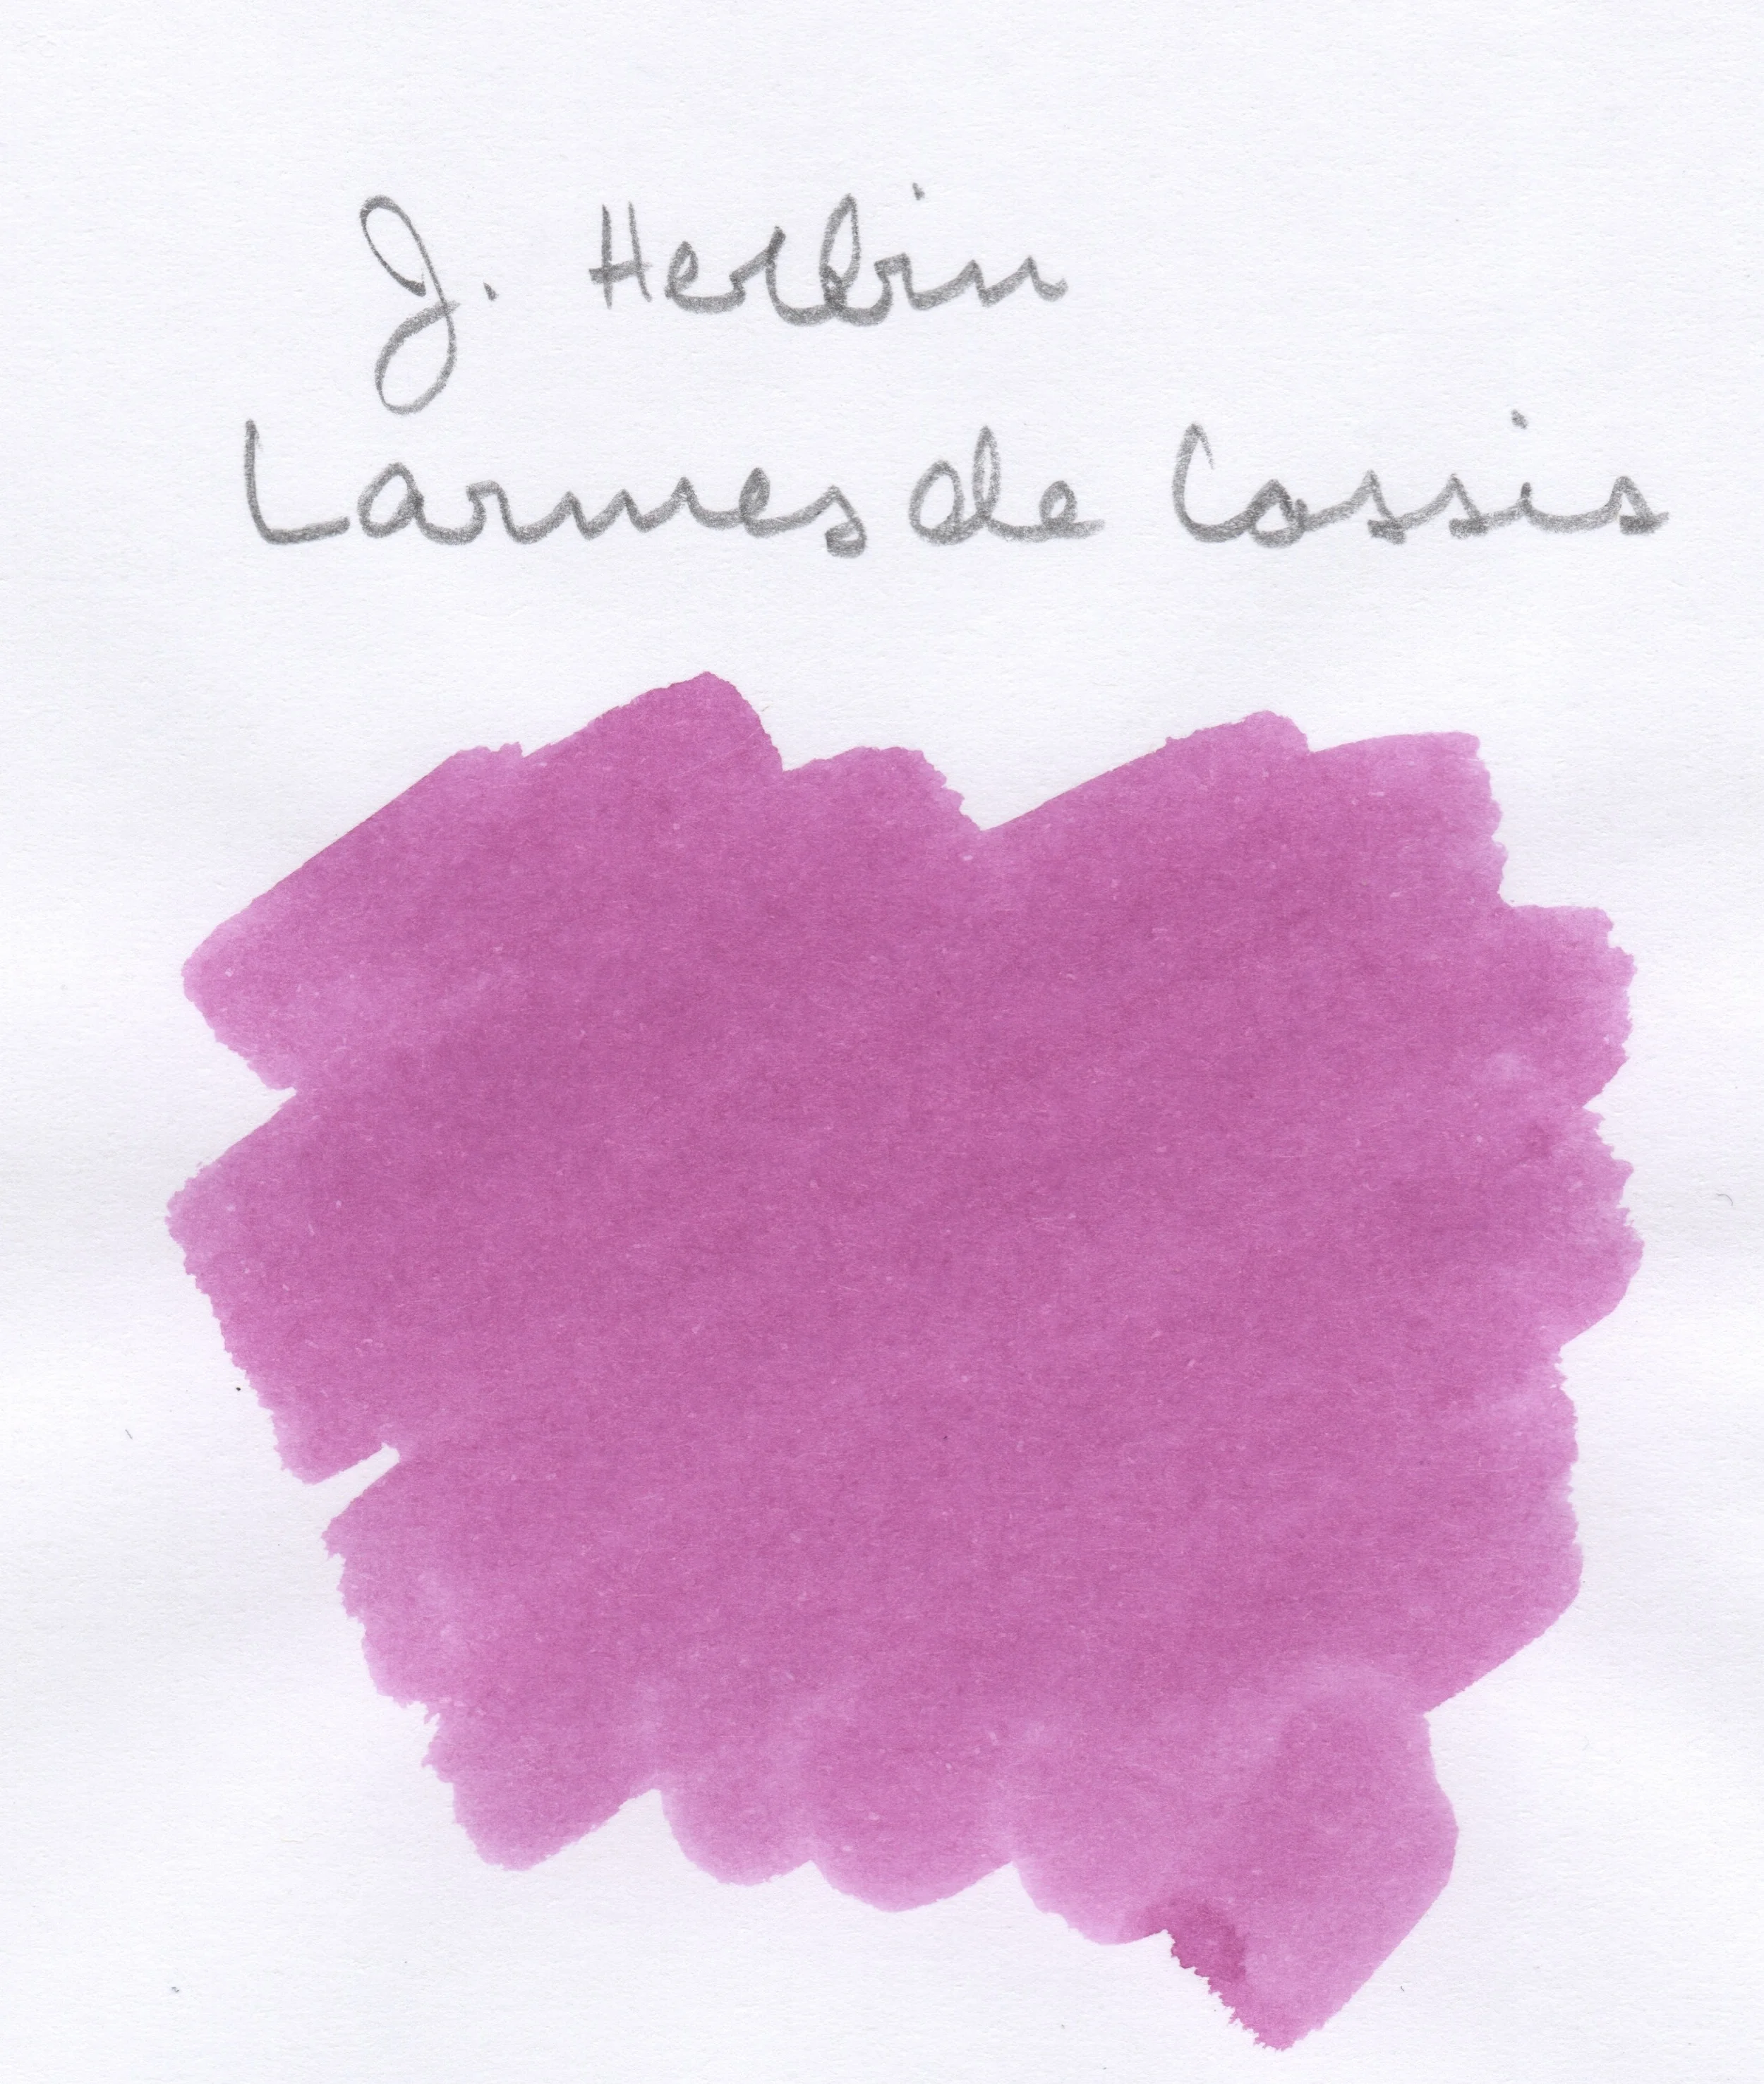 J. Herbin
Larmes de Cassis